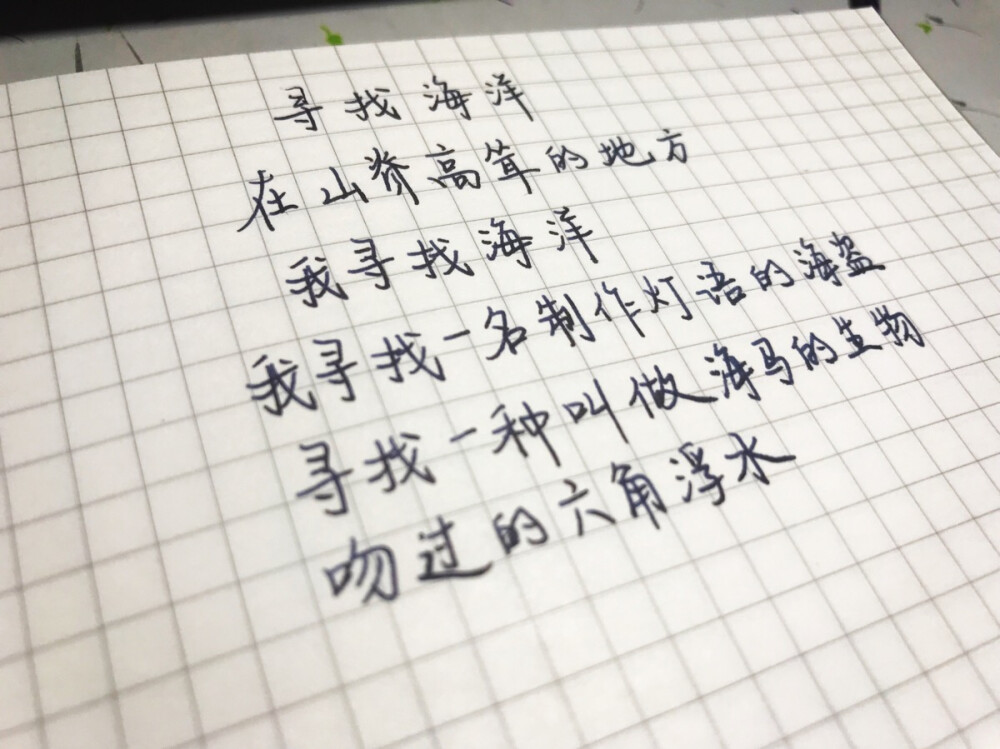 寻找海洋
在山脊高耸的地方
我寻找海洋
我寻找一名制作灯语的海盗
寻找一种叫做海马的生物
吻过的六角浮水